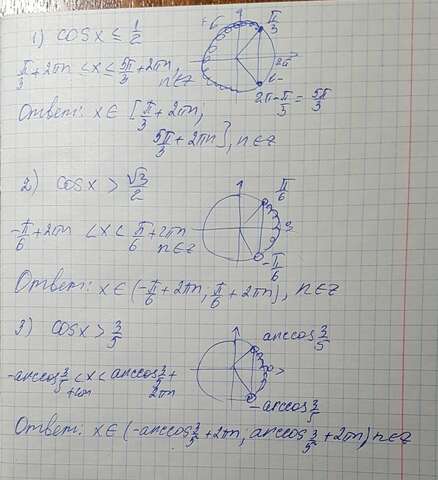 1) cosx ≤ 1/2
π/3 + 2πn ≤ x ≤ 5π/3 + 2πn,
n∈z
π/3
2π
2π - π/3 = 5π/3
Ответ: x∈ [π/3 + 2πn,
5π/3 + 2πn], n∈z
2) cosx > √3/2
π/6
-π/6 + 2πn < x < π/6 + 2πn
n∈z
-π/6
Ответ: x∈ (-π/6 + 2πn, π/6 + 2πn), n∈z
3) cosx > 3/5
arccos 3/5
-arccos 3/5 + 2πn < x < arccos 3/5 + 2πn
-arccos 3/5
Ответ: x∈ (-arccos 3/5 + 2πn; arccos 3/5 + 2πn) n∈z